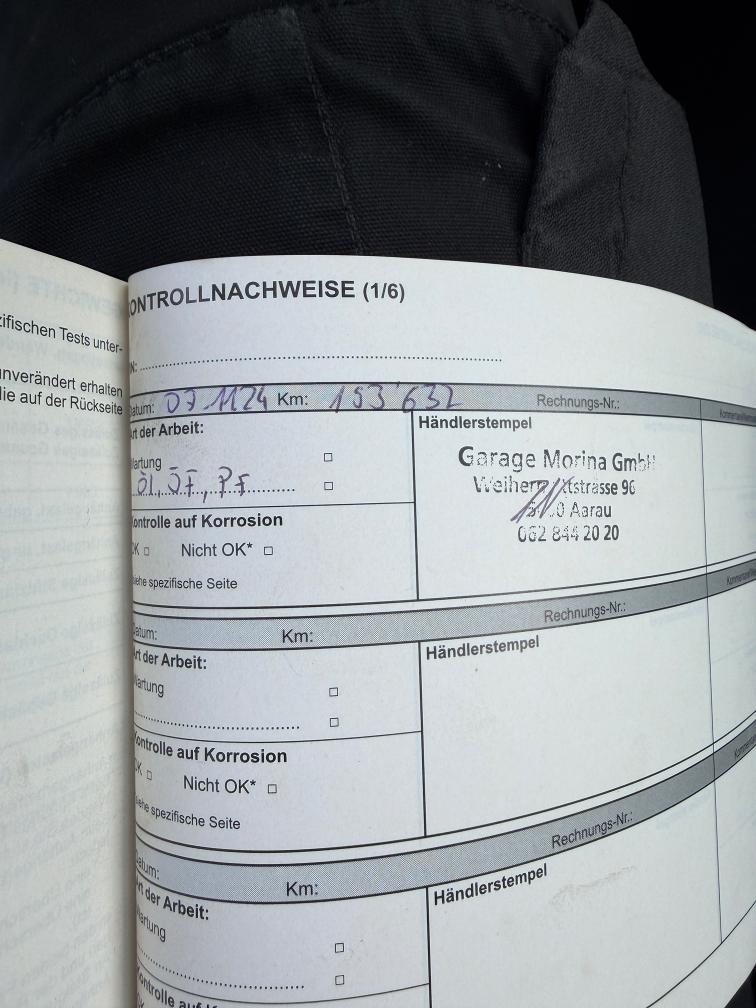 zifischen Tests unter-
unverändert erhalten
die auf der Rückseite
ONTROLLNACHWEISE (1/6)
N: ........
Datum: 07.11.24 Km: 153'632 Rechnungs-Nr.:
Art der Arbeit:
Händlerstempel
Wartung
Öl, ÖF, PF
Garage Morina GmbH
96
Aarau
062 844 20 20
Kontrolle auf Korrosion
OK □ Nicht OK* □
siehe spezifische Seite
Datum: Km: Rechnungs-Nr.:
Art der Arbeit:
Händlerstempel
Wartung
Kontrolle auf Korrosion
OK □ Nicht OK* □
siehe spezifische Seite
Datum: Km: Rechnungs-Nr.:
Art der Arbeit:
Händlerstempel
Wartung
Kontrolle auf